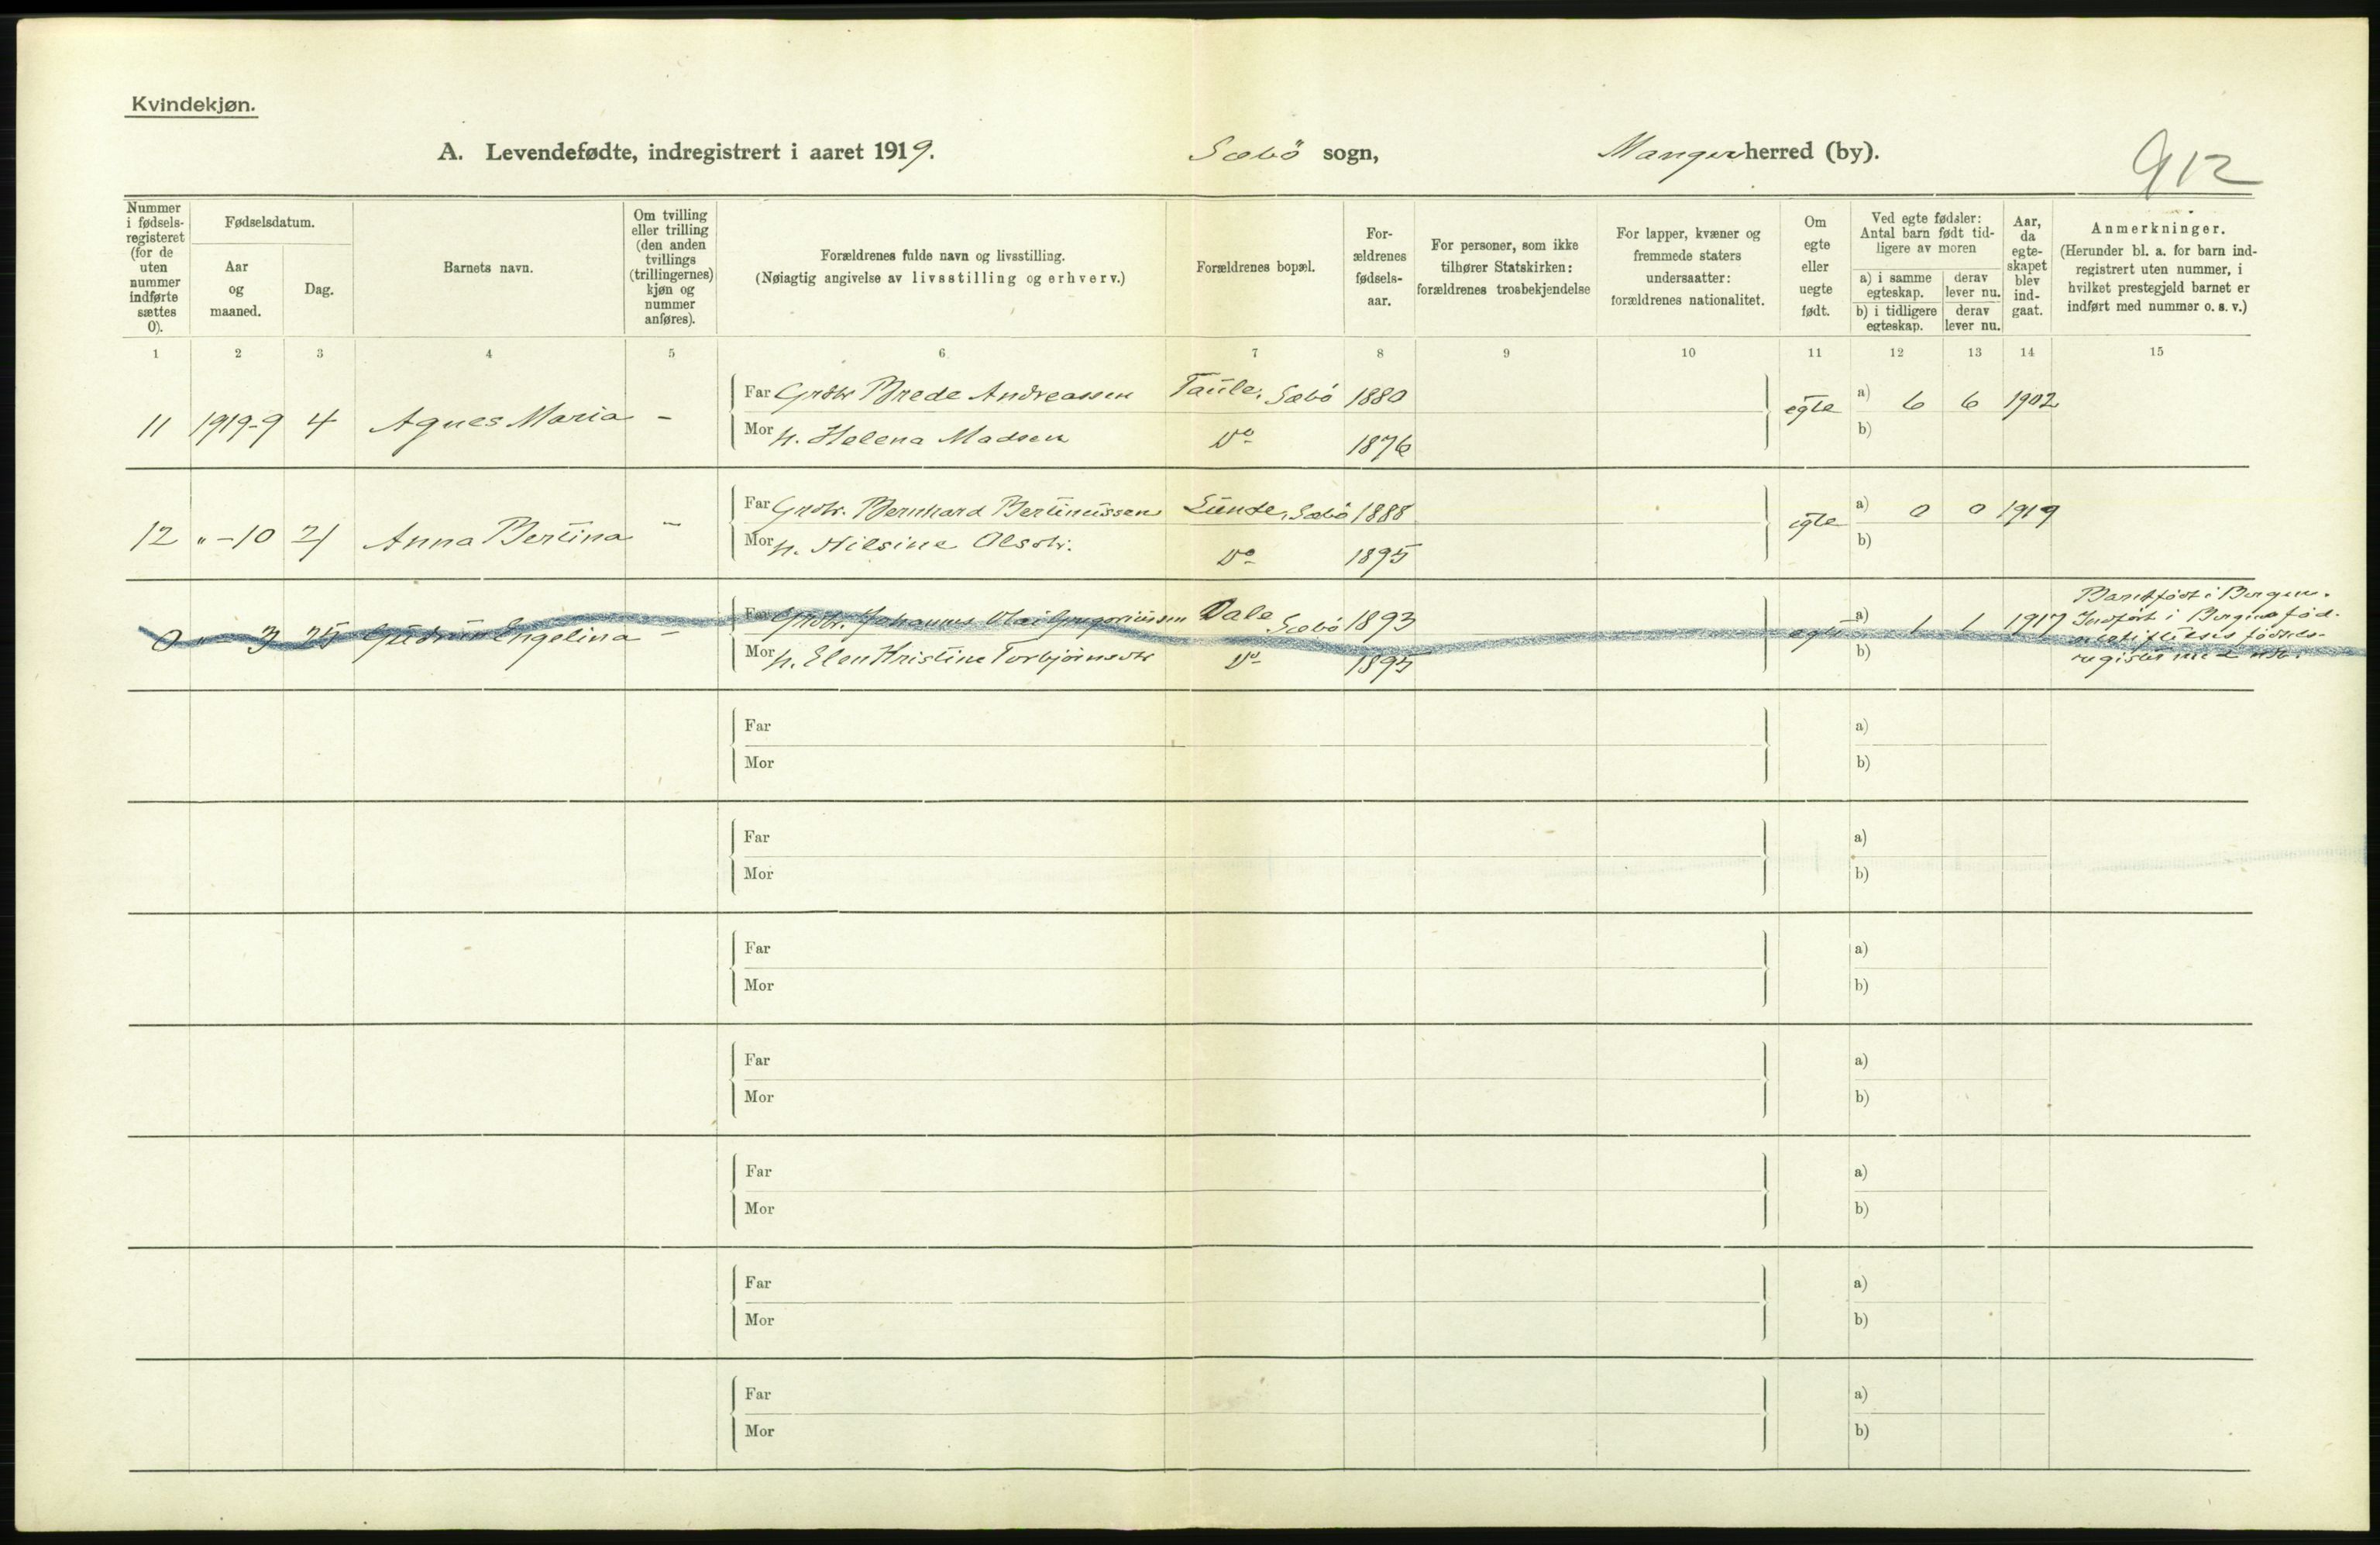 Kvindekjøn.
A. Levendefødte, indregistrert i aaret 1919. Sæbö sogn, Manger herred (by). 912
Nummer i fødsels-registeret (for de uten nummer indførte sættes 0).
Fødselsdatum.
Aar og maaned.
Dag.
Barnets navn.
Om tvilling eller trilling (den anden tvillings (trillingernes) kjøn og nummer anføres).
Forældrenes fulde navn og livsstilling.
(Nøiagtig angivelse av livsstilling og erhverv.)
Forældrenes bopæl.
For-ældrenes fødsels-aar.
For personer, som ikke tilhører Statskirken: forældrenes trosbekjendelse
For lapper, kvæner og fremmede staters undersaatter: forældrenes nationalitet.
Om egte eller uegte født.
Ved egte fødsler: Antal barn født tid-ligere av moren
a) i samme egteskap.
derav lever nu.
b) i tidligere egteskap.
derav lever nu.
Aar, da egte-skapet blev ind-gaat.
Anmerkninger.
(Herunder bl. a. for barn ind-registrert uten nummer, i hvilket prestegjeld barnet er indført med nummer o. s. v.)
1 2 3 4 5 6 7 8 9 10 11 12 13 14 15
Far Grdbr Brede Andreassen Taule, Sæbö 1880
11 1919-9 4 Agnes Maria - egte a) 6 6 1902
Mor h. Helena Madsen Do 1876 b)
Far Grdbr. Bernhard Bertinussen Lunde, Sæbö 1888
12 " - 10 21 Anna Bertina - egte a) 0 0 1919
Mor h. Nilsine Olsdtr. Do 1895 b)
Far Grdbr. Johannes Olai Gregoriussen Dale Sæbö 1893
0 " - 3 25 Gudrun Engelina - egte a) 1 1 1917
Mor h. Elen Kristine Torbjörnsdtr Do 1895 b)
Barnet födt i Bergen.
Indfört i Bergens föd-
födsels-
register med nr.
Far a)
Mor b)
Far a)
Mor b)
Far a)
Mor b)
Far a)
Mor b)
Far a)
Mor b)
Far a)
Mor b)
Far a)
Mor b)